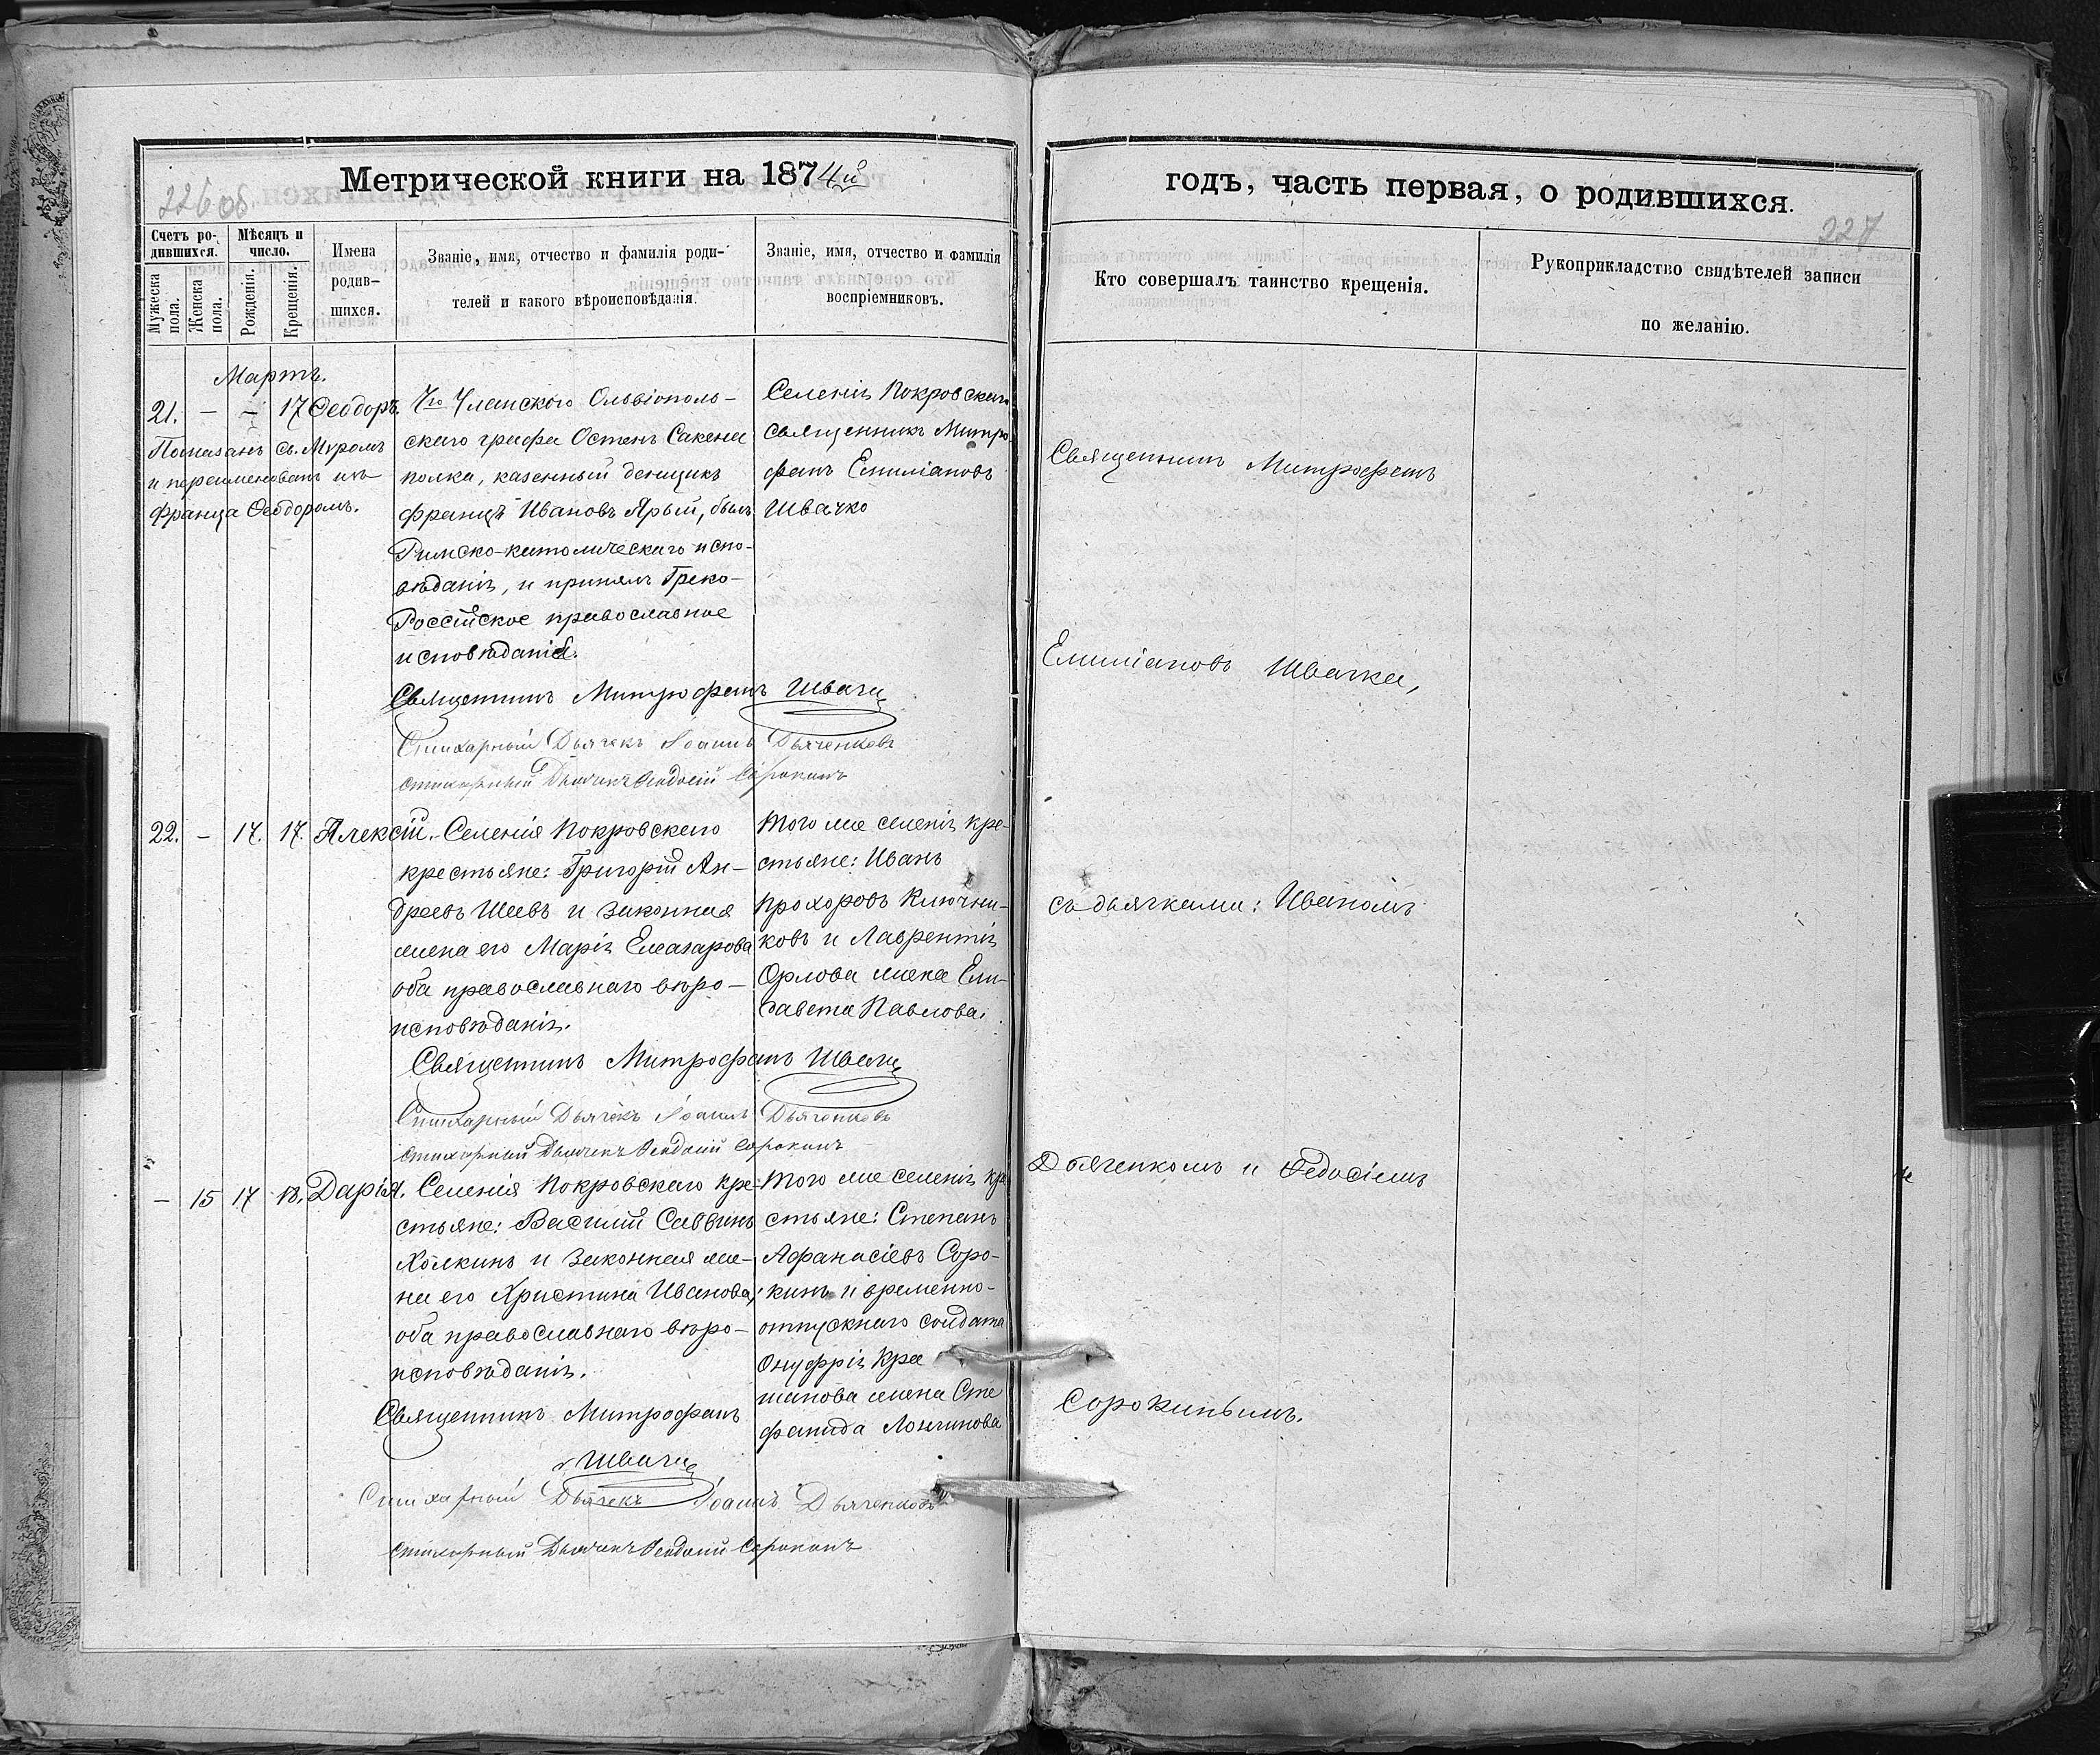 Метрической книги на 1874й
годъ, часть первая, о родившихся.
226 об.
227
Счетъ ро-
дившихся.
Мужеска
пола.
Женска
пола.
Мѣсяцъ и
число.
Рожденія.
Крещенія.
Имена
родив-
шихся.
Званіе, имя, отчество и фамилія роди-
телей и какого вѣроисповѣданія.
Званіе, имя, отчество и фамилія
воспріемниковъ.
Кто совершалъ таинство крещенія.
Рукоприкладство свидѣтелей записи
по желанію.
Мартъ.
21. – – 17 Ѳеодоръ.
Помазанъ св. Мѵромъ
и переименованъ изъ
Франца Ѳеодоромъ.
7го Уланскаго Ольвіополь-
скаго графа Остенъ Сакена
полка, казенный денщикъ
Францъ Ивановъ Ярый, былъ
Римско-католическаго испо-
вѣданія, и принялъ Греко-
Россійское православное
исповѣданіе.
Селенія Покровскаго
священникъ Митро-
фанъ Емиліановъ
Швачко
Священникъ Митрофанъ Швачка
Стихарный Дьячекъ Іоаннъ Дьяченковъ
Стихарный Дьячекъ Ѳеодосій Сорокинъ
22. – 17. 17. Алексій.
Селенія Покровскаго
крестьяне: Григорій Ан-
дреевъ Шевъ и законная
жена его Марія Елеазарова
оба православнаго вѣро-
исповѣданія.
Того же селенія кре-
стьяне: Иванъ
Прохоровъ Ключни-
ковъ и Лаврентія
Орлова жена Ели-
завета Павлова.
Священникъ Митрофанъ Швачка
Стихарный Дьячекъ Іоаннъ Дьяченковъ
Стихарный Дьячекъ Ѳеодосій Сорокинъ
– 15 17 18. Дарія.
Селенія Покровскаго кре-
стьяне: Василій Саввинъ
Холкинъ и законная же-
на его Христина Иванова,
оба православнаго вѣро-
исповѣданія.
Того же селенія кре
стьяне: Степанъ
Афанасіевъ Соро-
кинъ и временно-
отпускнаго солдата
Онуфрія Кра
шанова жена Сте
фанида Лонгинова
Священникъ Митрофанъ
Швачка
Стихарный Дьячекъ Іоаннъ Дьяченковъ
Стихарный Дьячекъ Ѳеодосій Сорокинъ
Священникъ Митрофанъ
Емиліановъ Швачка,
съ дьячками: Иваномъ
Дьяченкомъ и Ѳедосіемъ
Сорокинымъ.